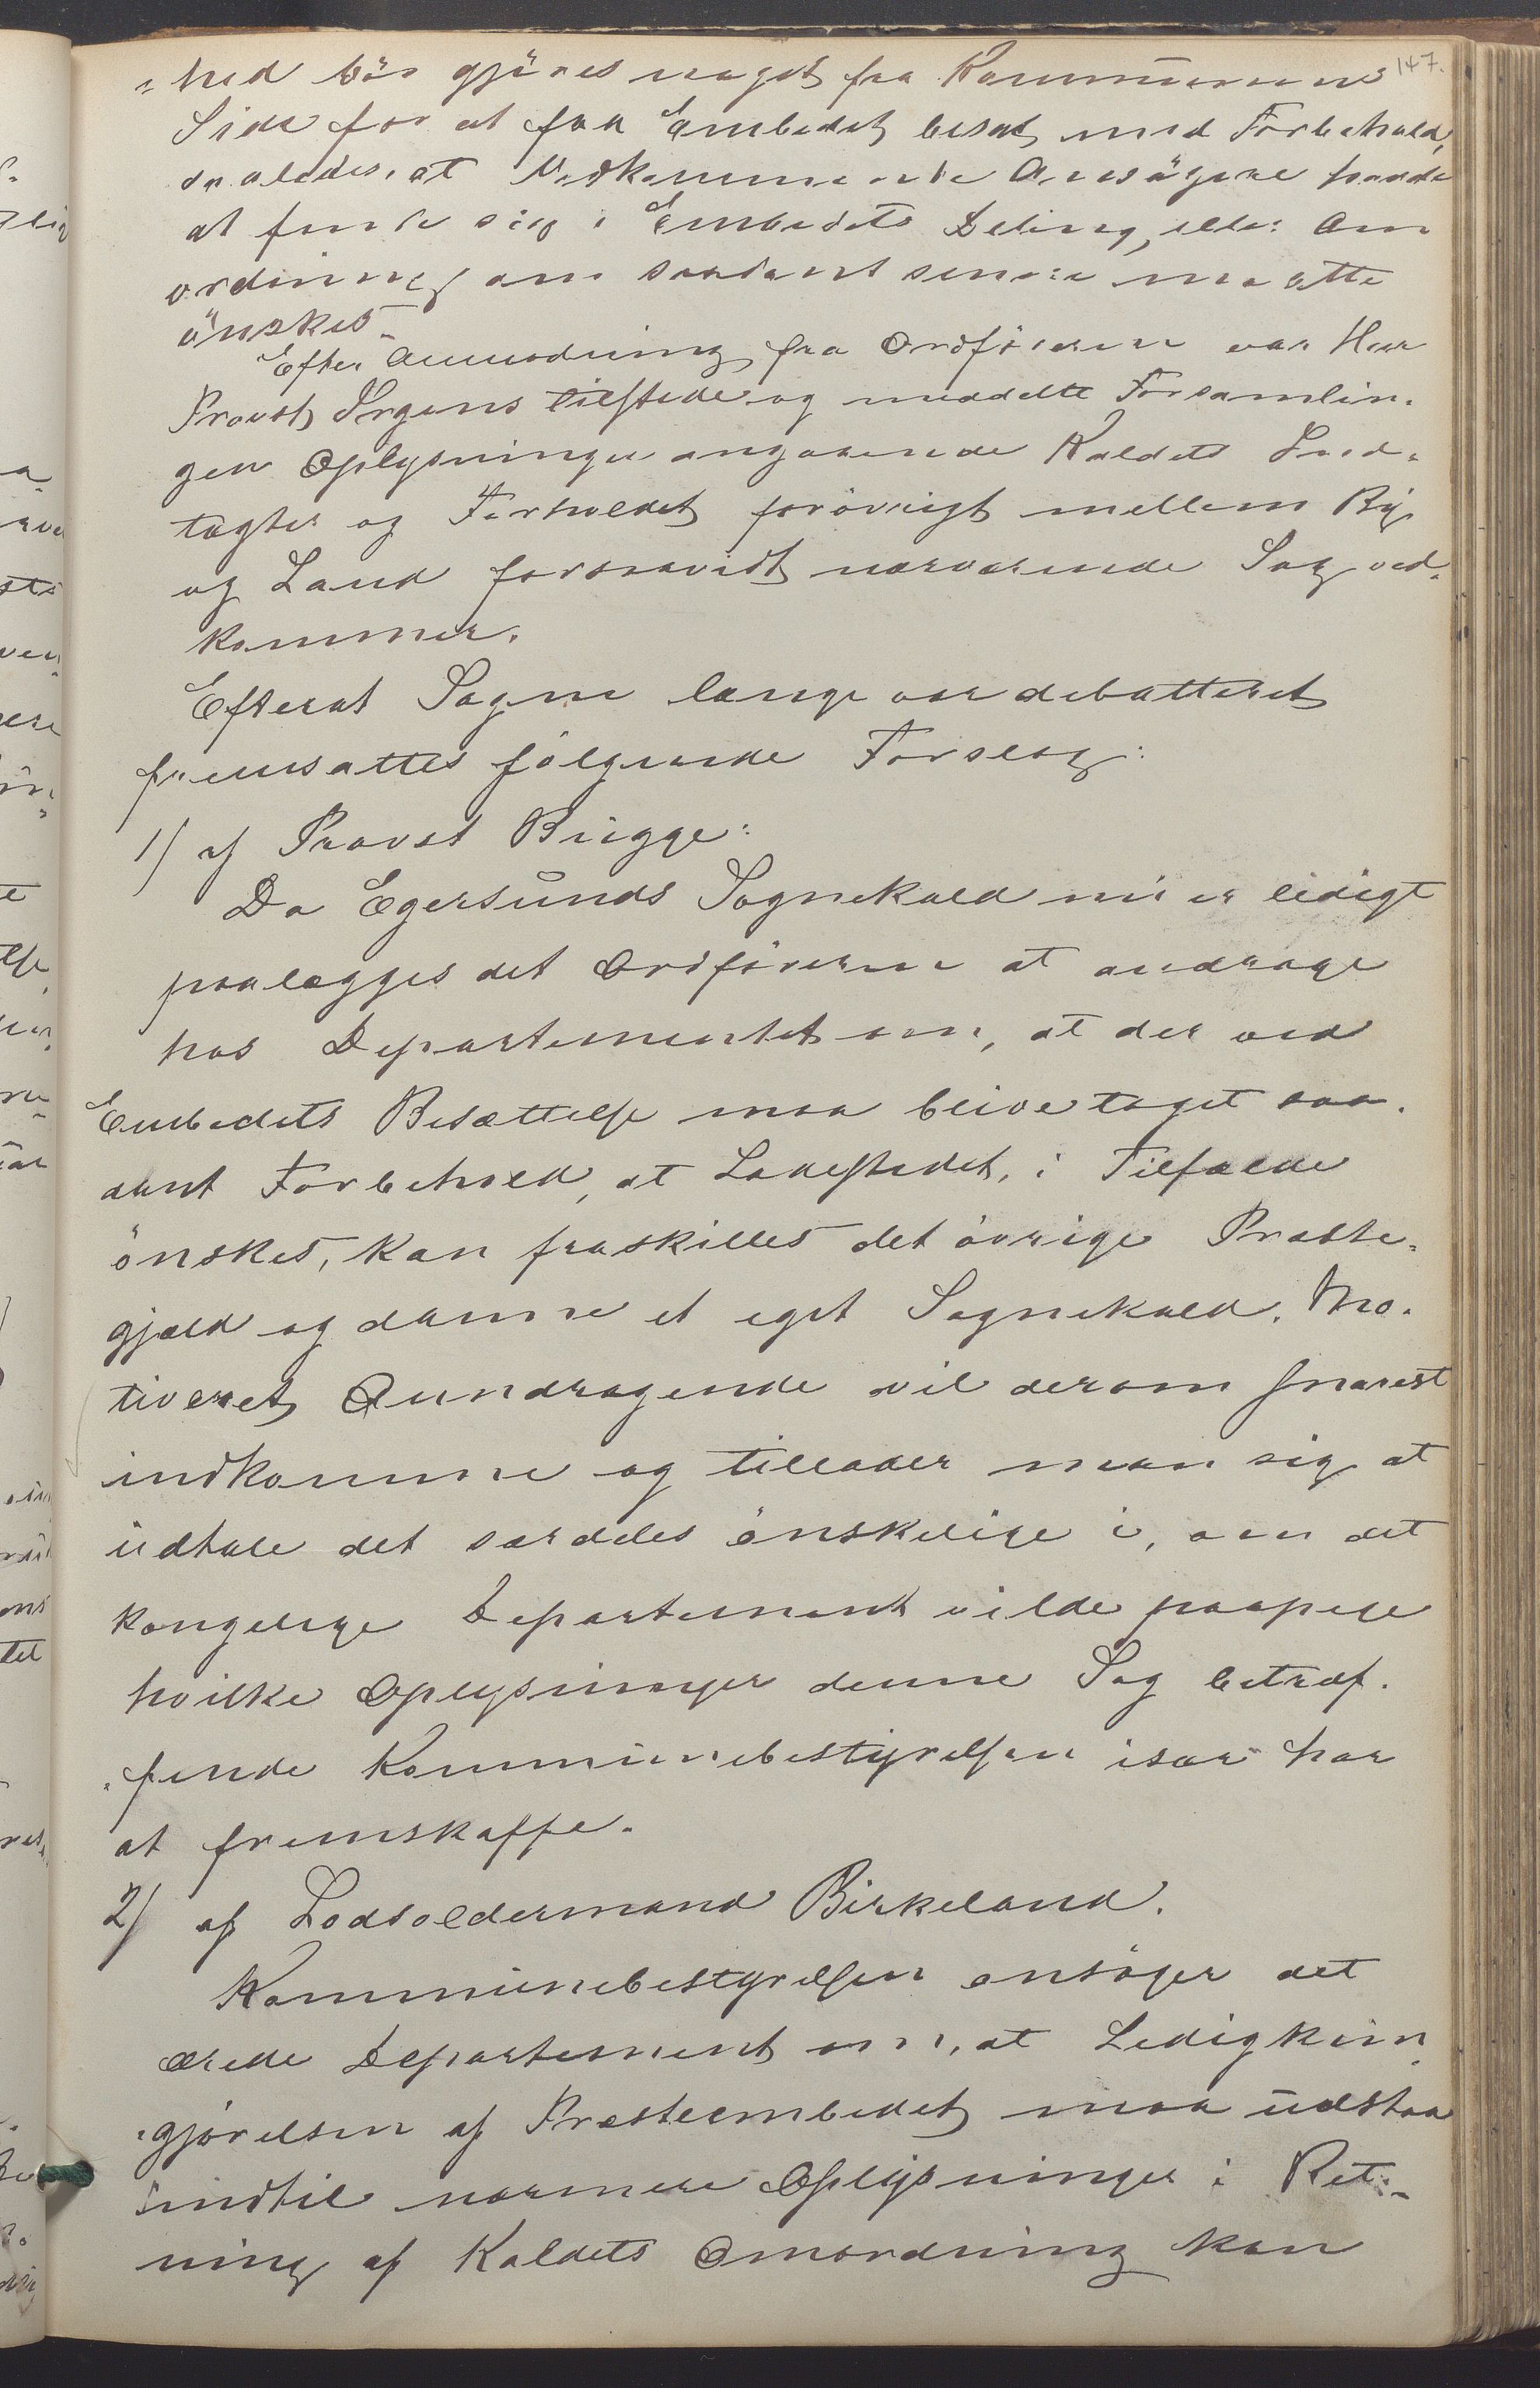 147.
"hed bör gjöres noget fra Kommunens
Side for at faa Embedet besat med Forbehold,
saaledes, at Vedkommende Ansögere fandt
at finde sig i Embedets Deling, eller Om
ordning om saadant senere maatte
önskes.
Efter Anmodning fra Ordföreren var Herr
Provst Irgens tilstede og meddelte Forsamlin-
gen Oplysninger angaaende Kaldets Ind-
tægter og Forholdet forövrigt mellem By
og Land forsaavidt nærværende Sag ved-
kommer.
Efterat Sagen længe var debatteret
fremsattes fölgende Forslag:
1/ af Provst Brügge:
Da Egersunds Sognekald nu er ledigt
paalægges det Ordföreren at andrage
hos Departementet om, at der ved
Embedets Besættelse maa blive taget saa-
dant Forbehold, at Ladestedet, i Tilfælde
önskes, kan fraskilles det övrige Præste-
gjæld og danne et eget Sognekald. Mo-
tiveret Anndragende vil derom snarest
indkomme og tillader man sig at
udtale det særdeles önskelige i, om det
kongelige Departement vilde paapege
hvilke Oplysninger denne Sag betræf-
fende Kommunebestyrelsen især har
at fremskaffe.
2/ af Lodsoldermand Birkeland.
Kommunebestyrelsen ansöger det
ærede Departement om, at Ledigkun
"gjörelsen af Præsteembedet maa udstaa
indtil nærmere Oplysninger i Ret-
ning af Kaldets Omordning kan